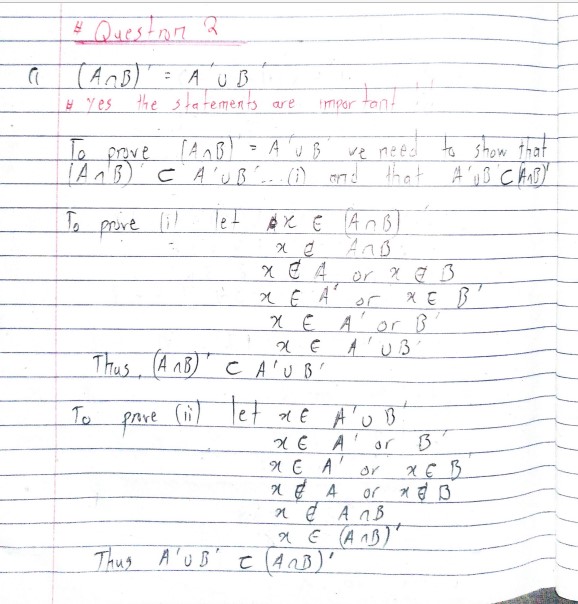 # Question 2
a (A∩B)' = A'∪B'
# Yes the statements are important !!
To prove (A∩B)' = A'∪B' we need to show that
(A∩B)' ⊂ A'∪B'... (i) and that A'∪B' ⊂ (A∩B)'
To prove (i) let x ∈ (A∩B)'
x ∉ A∩B
x ∉ A or x ∉ B
x ∈ A' or x ∈ B'
x ∈ A' or B'
x ∈ A'∪B'
Thus, (A∩B)' ⊂ A'∪B'
To prove (ii) let x ∈ A'∪B'
x ∈ A' or B'
x ∈ A' or x ∈ B'
x ∉ A or x ∉ B
x ∉ A∩B
x ∈ (A∩B)'
Thus A'∪B' ⊂ (A∩B)'